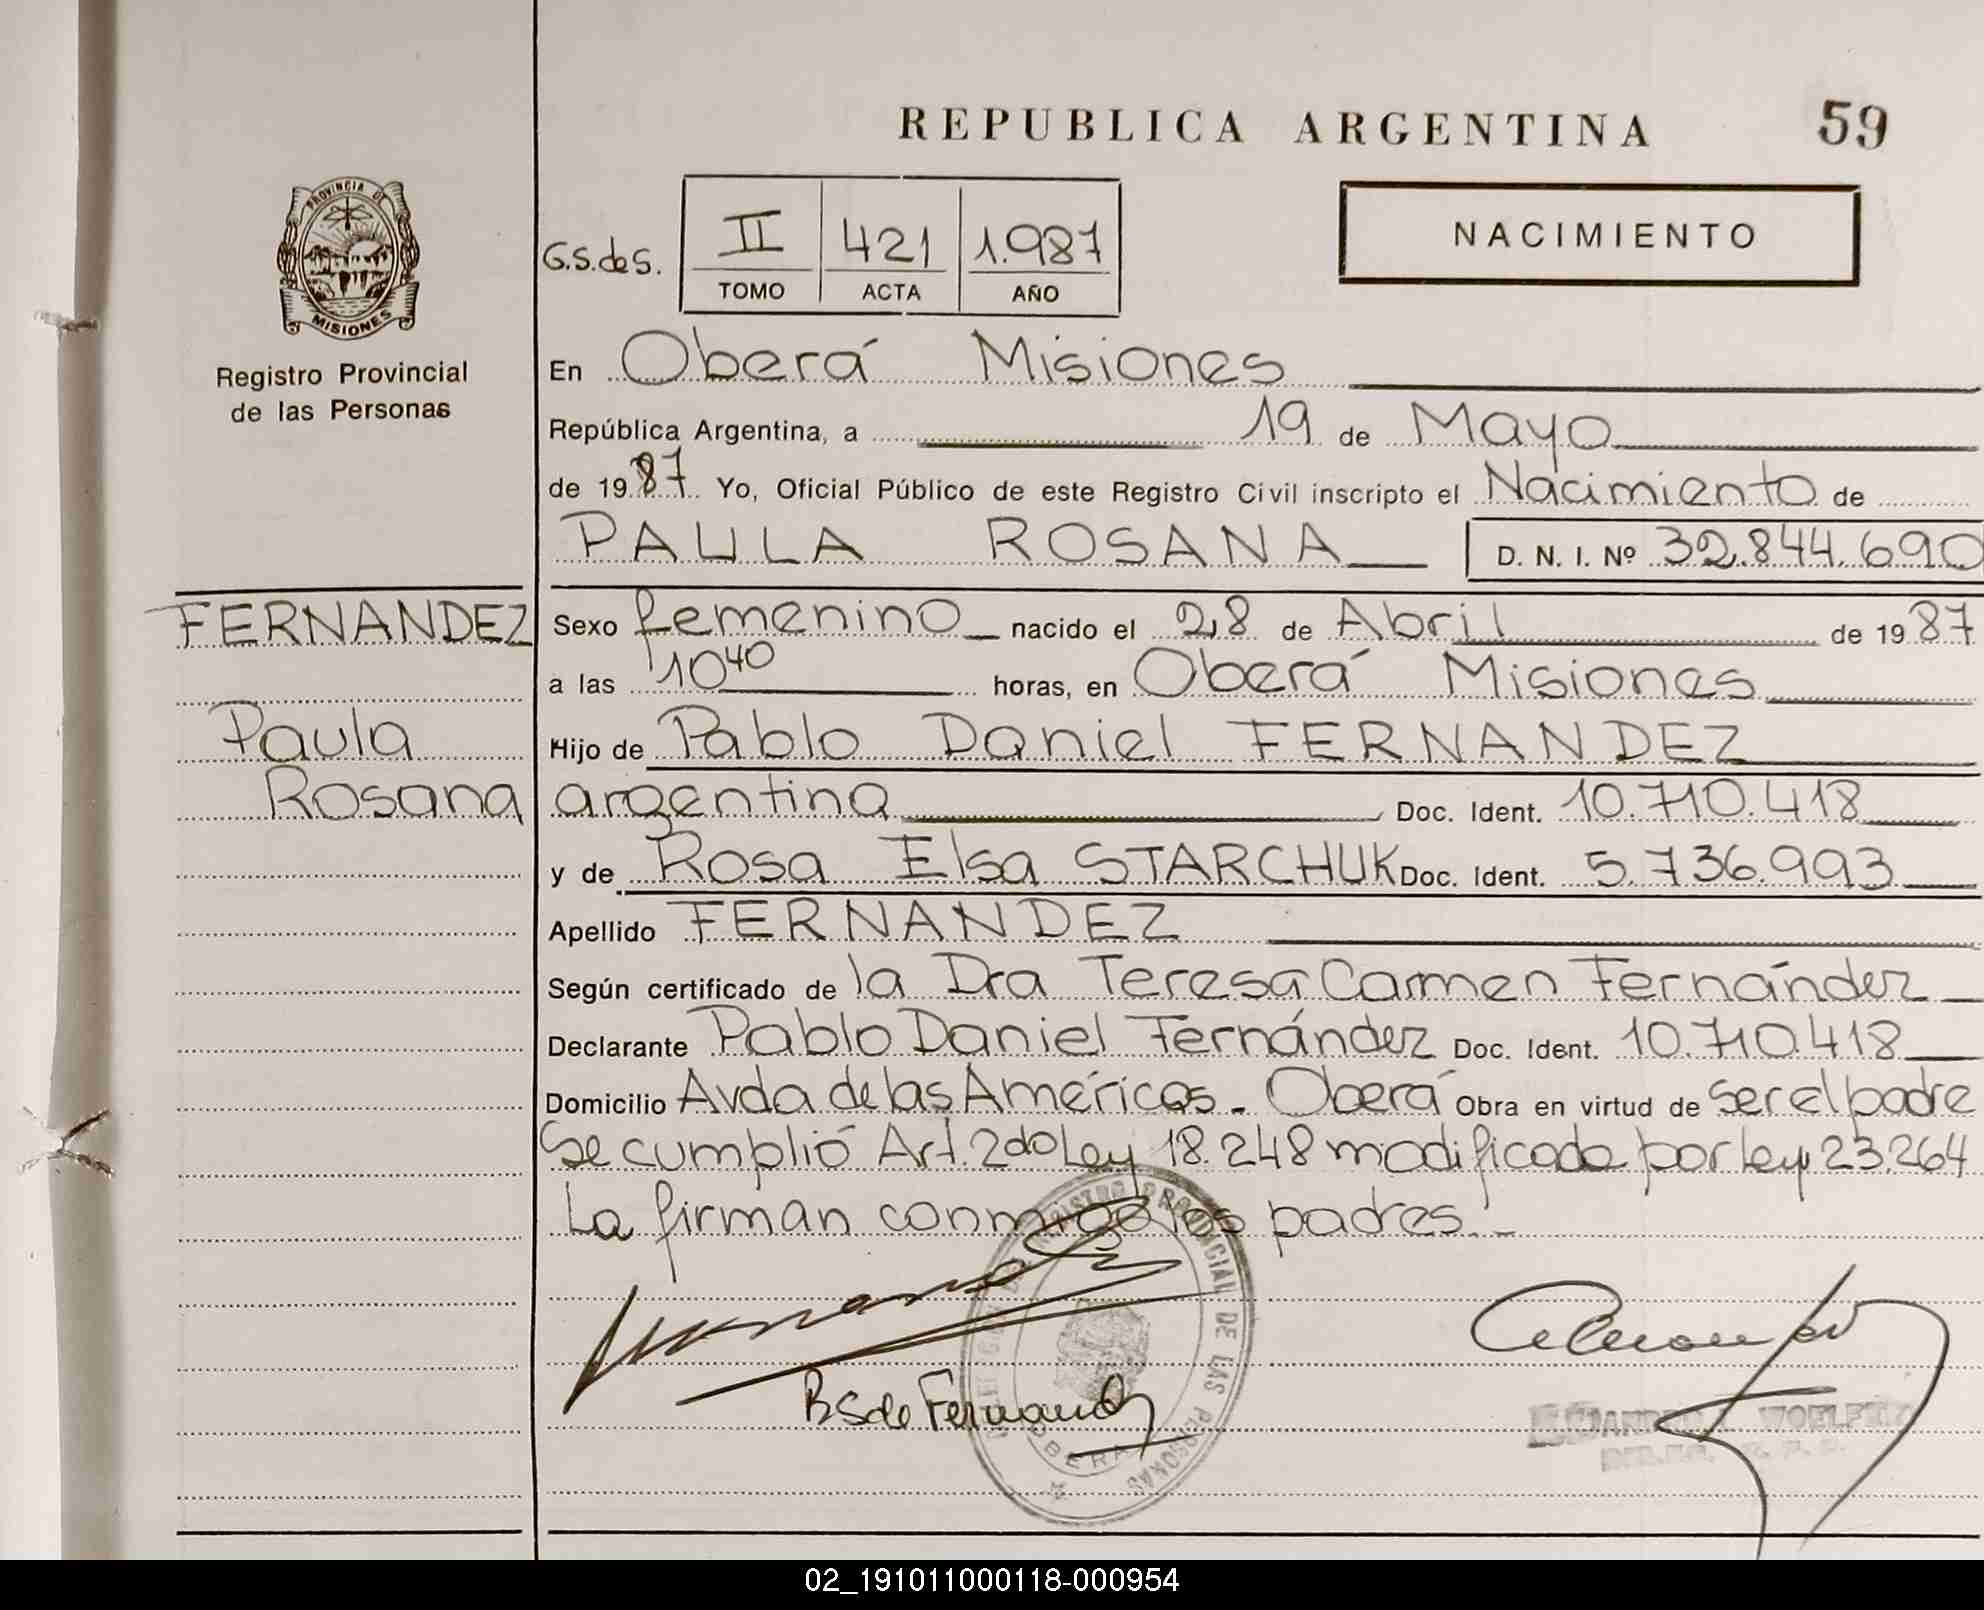 REPUBLICA ARGENTINA 59
PROVINCIA DE
MISIONES
Registro Provincial
de las Personas
G.S.deS. II 421 1.987
TOMO ACTA AÑO
NACIMIENTO
En Oberá Misiones
República Argentina, a 19 de Mayo
de 1987 Yo, Oficial Público de este Registro Civil inscripto el Nacimiento de
PAULA ROSANA D. N. I. Nº 32.844.690
FERNANDEZ
Paula
Rosana
Sexo femenino nacido el 28 de Abril de 1987
a las 10 40 horas, en Oberá Misiones
Hijo de Pablo Daniel FERNANDEZ
argentina Doc. Ident. 10.710.418
y de Rosa Elsa STARCHUK Doc. Ident. 5.736.993
Apellido FERNANDEZ
Según certificado de la Dra Teresa Carmen Fernández
Declarante Pablo Daniel Fernández Doc. Ident. 10.710.418
Domicilio Avda de las Américas - Oberá Obra en virtud de ser el padre
Se cumplió Art. 2do Ley 18.248 modificado por ley 23.264
La firman conmigo los padres.-
REGISTRO PROVINCIAL DE LAS PERSONAS
OBERA
RS de Fernandez
02_191011000118-000954